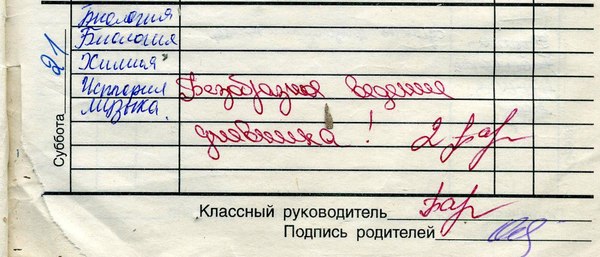 Биология
Биология
Химия
История
Музыка.
Суббота 21
Безобразное ведение
дневника! 2
Классный руководитель
Подпись родителей